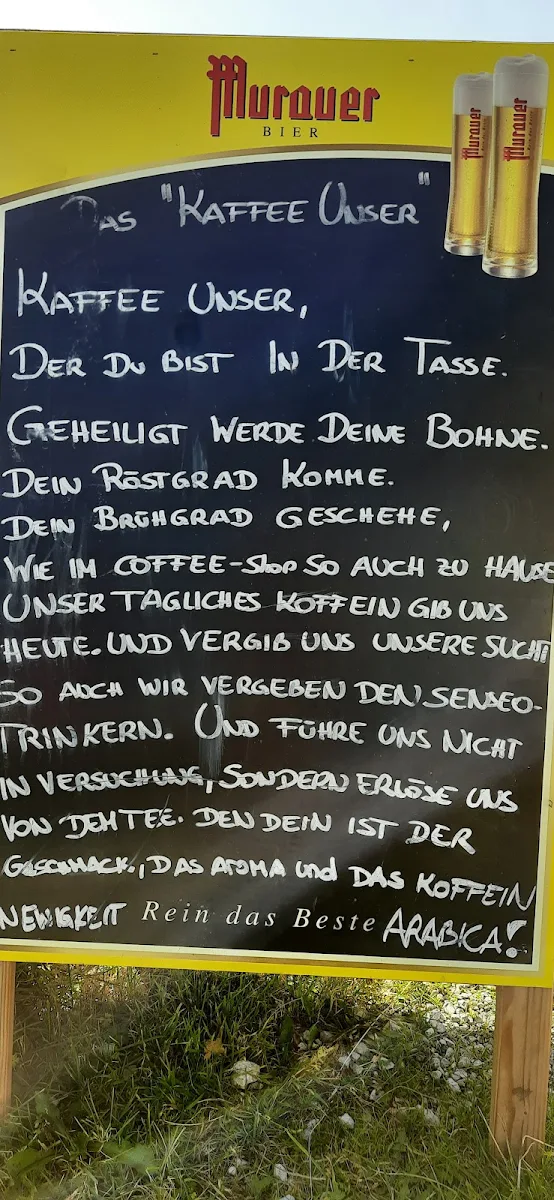 Murauer
BIER
Murauer
Murauer
DAS "KAFFEE UNSER"
KAFFEE UNSER,
DER DU BIST IN DER TASSE.
GEHEILIGT WERDE DEINE BOHNE.
DEIN RÖSTGRAD KOMME.
DEIN BRÜHGRAD GESCHEHE,
WIE IM COFFEE-Shop SO AUCH ZU HAUSE
UNSER TÄGLICHES KOFFEIN GIB UNS
HEUTE. UND VERGIB UNS UNSERE SUCHT
SO AUCH WIR VERGEBEN DEN SENSEO-
TRINKERN. UND FÜHRE UNS NICHT
IN VERSUCHUNG, SONDERN ERLÖSE UNS
VON DEM TEE. DEN DEIN IST DER
GESCHMACK., DAS AROMA und DAS KOFFEIN
NEWIGKEIT Rein das Beste ARABICA!